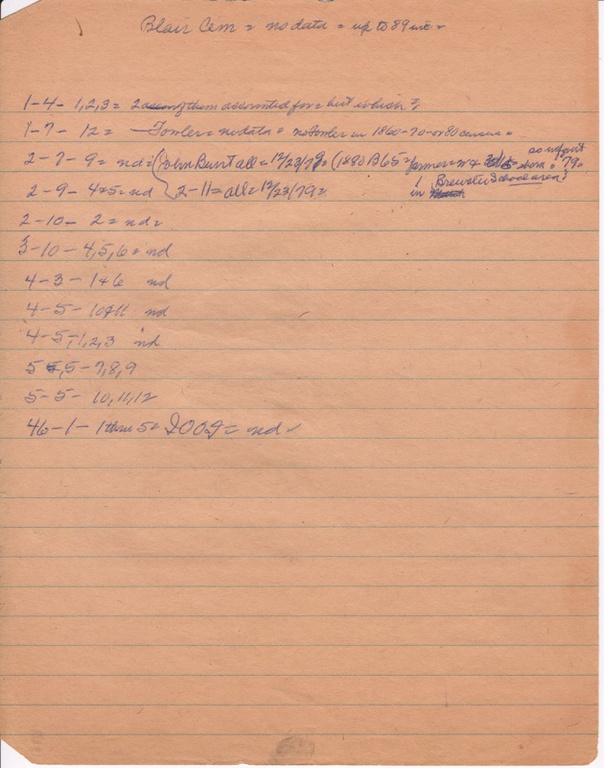 Blair Cem = no data = up to 89 inc =
1-4- 1,2,3 = 2 among them accounted for = but which?
1-7- 12 = Fowler = no data = no Fowler in 1860-70-or 80 census =
2-7-9 = nd = (John all = 12/23/79 = (1880 B65 = farmer = born = 79 =
2-9-4+5 = nd 2-11 = all = 12/23/79 = in Brewster School area?
2-10- 2 = nd =
3-10-4,5,6 = nd
4-3-1+6 nd
4-5-10+11 nd
4-5-1,2,3 nd
5 5-7,8,9
5-5- 10,11,12
46-1- 1 thru 5 = = nd